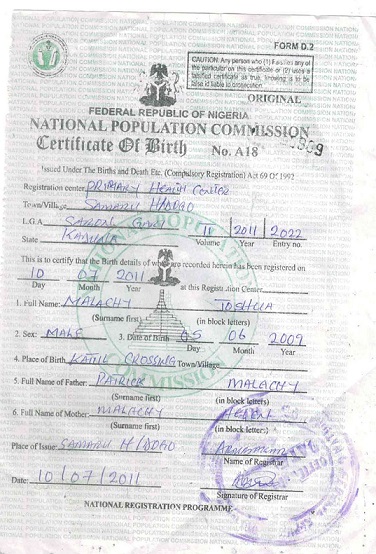 FORM D.2
CAUTION: Any person who (1) Falsifies any of
the particular on this certificate or (2) uses a
falsified certificate as true, knowing is to be
false is liable to prosecution.
ORIGINAL
FEDERAL REPUBLIC OF NIGERIA
NATIONAL POPULATION COMMISSION
Certificate Of Birth No. A18
Issued Under The Births and Death Etc. (Compulsory Registration) Act 69 Of 1992
Registration center PRIMARY HEALTH CENTER
Town/Village SAMARU H/ADAO
L.G.A II 2011 2022
State KADUNA Volume Year Entry no.
This is to certify that the Birth details of which are recorded herein has been registered on
10 07 2011 at this Registration Center
Day Month Year
1. Full Name: MALACHY JOSHUA
(Surname first) (in block letters)
2. Sex: MALE 3. Date of Birth 05 06 2009
Day Month Year
4. Place of Birth KATIL CROSSING Town/Village
5. Full Name of Father: PATRICK MALACHY
(Surname first) (in block letters)
6. Full Name of Mother: MALACHY HELEN
(Surname first) (in block letters)
Place of Issue: SAMARU H/ADAO
Name of Registrar
Date: 10/07/2011
Signature of Registrar
NATIONAL REGISTRATION PROGRAMME